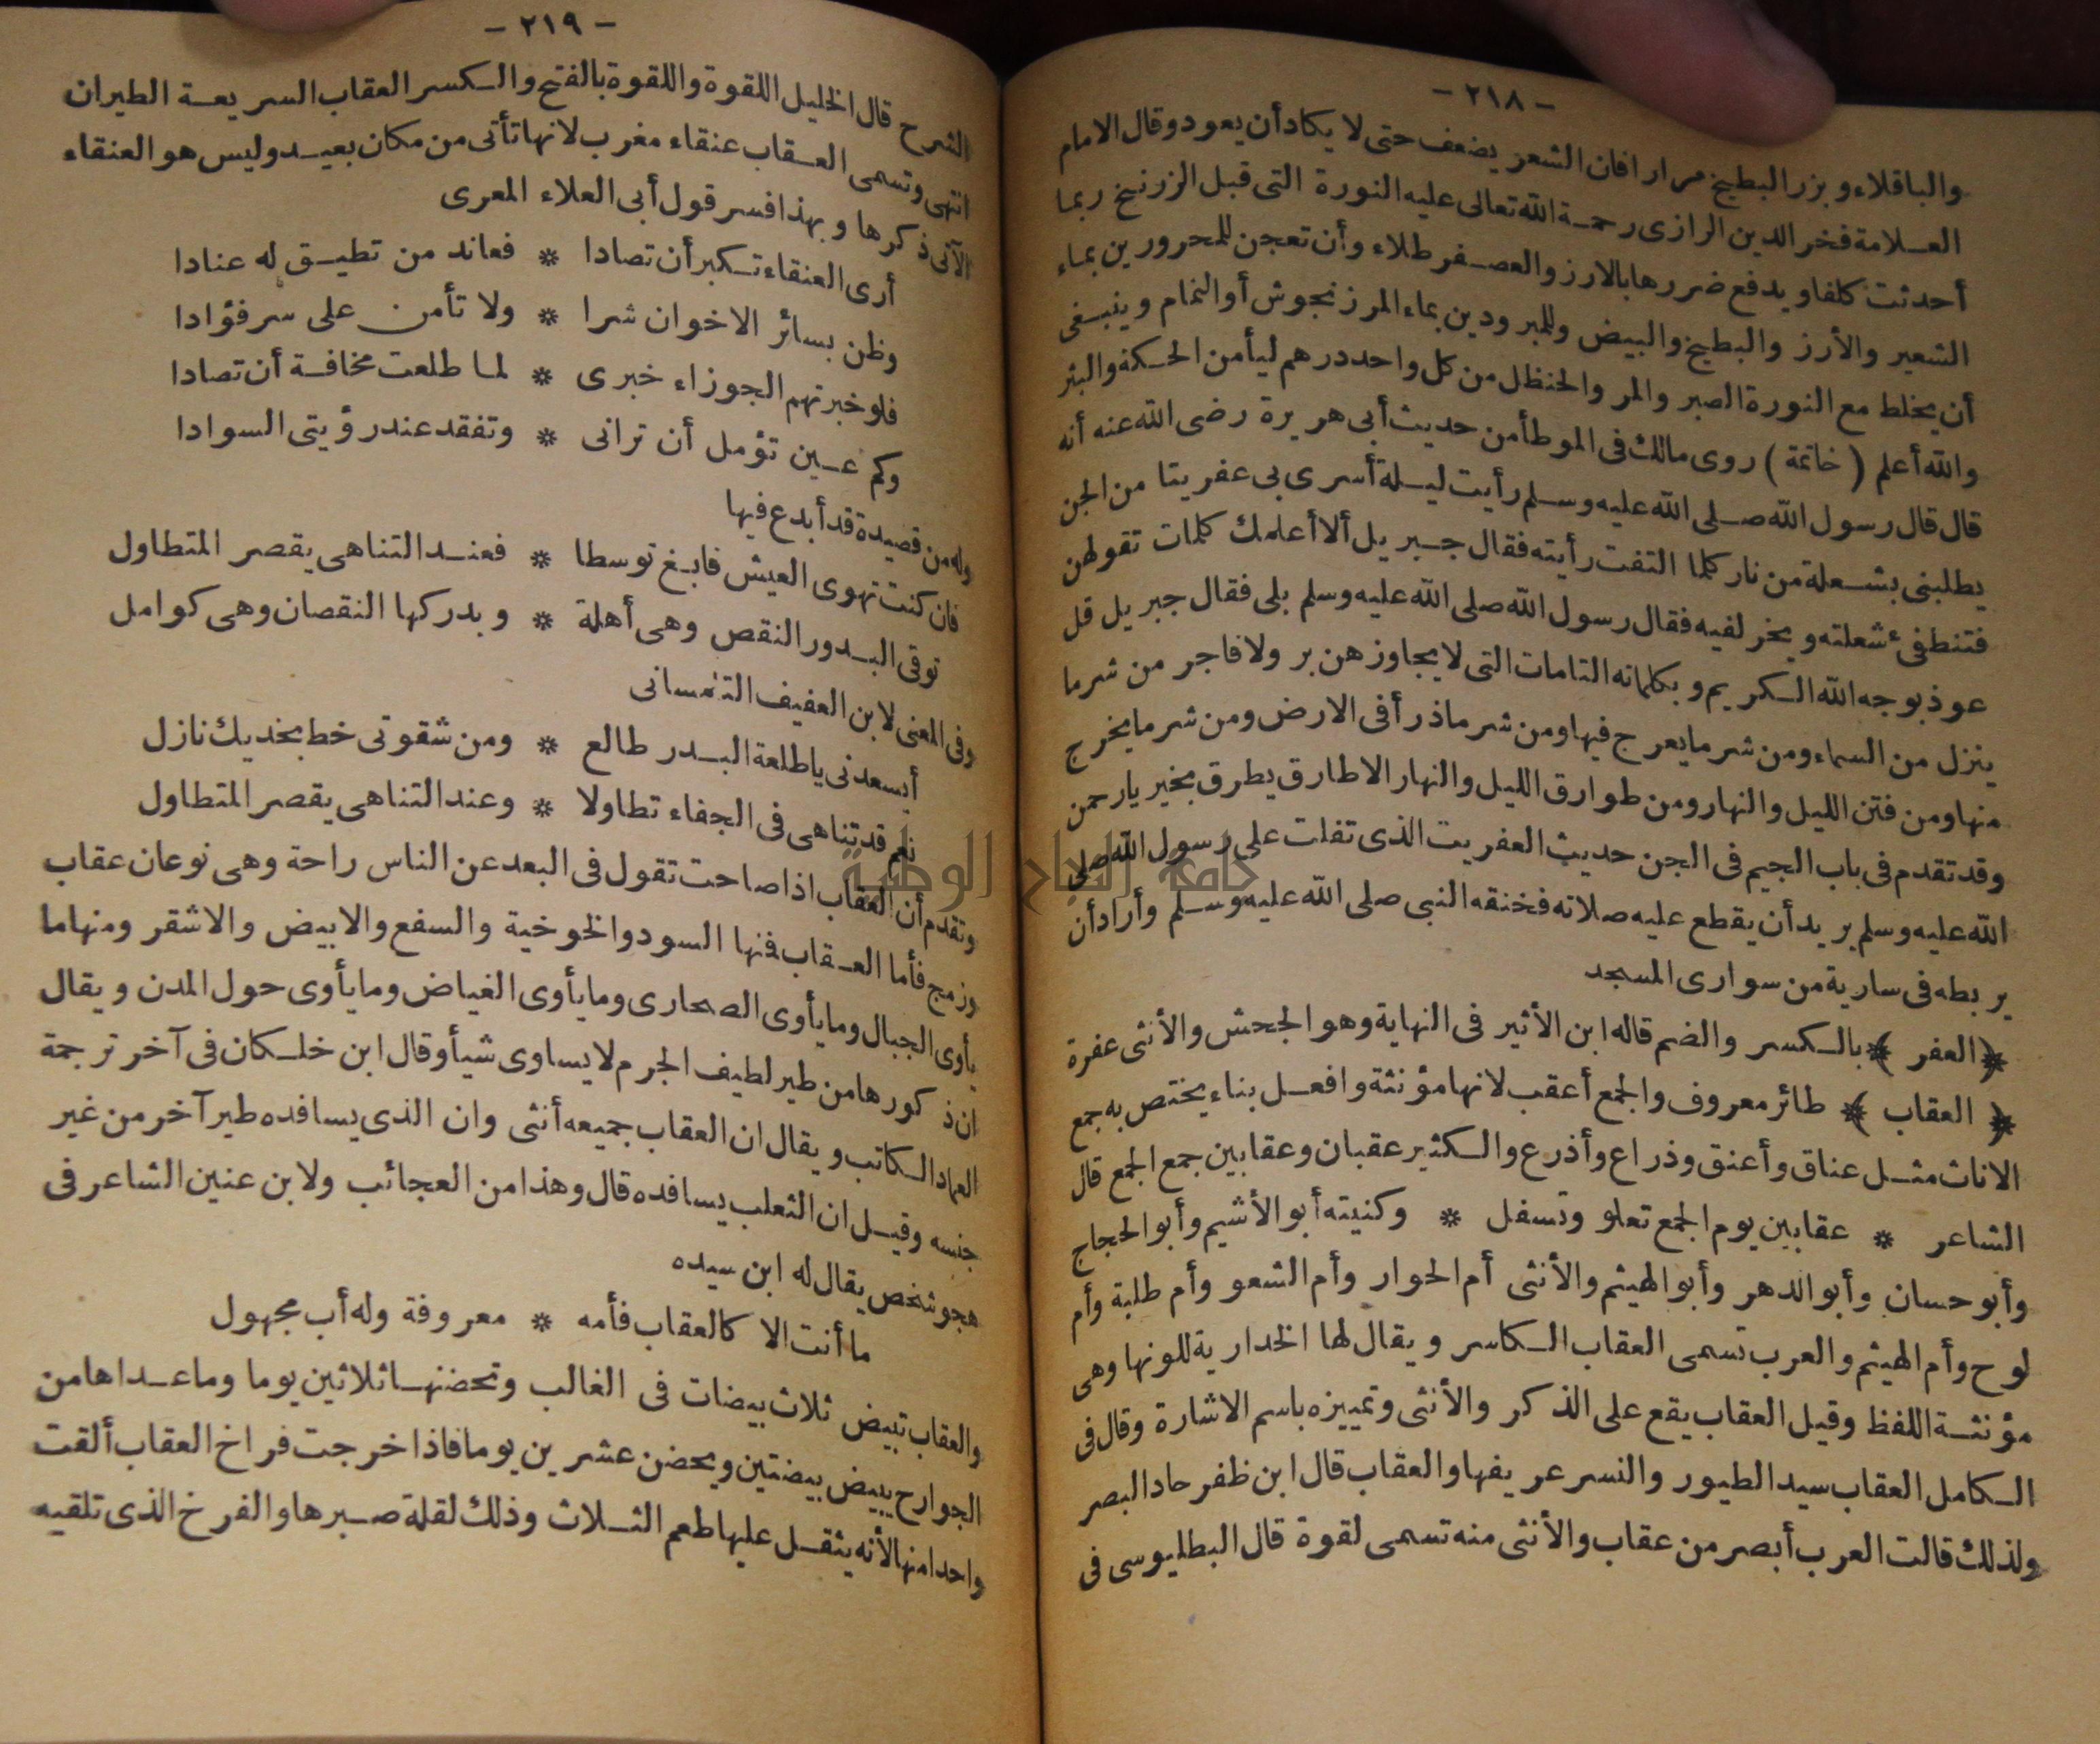 – ٢١٨ –
والباقلاء وبزر البطيخ مرارا فان الشعر يضعف حتى لا يكاد أن يعود وقال الامام
العلامة فخر الدين الرازى رحمة الله تعالى عليه النورة التى قبل الزرنيخ ربما
أحدثت كلفا ويدفع ضررها بالارز والعصفر طلاء وأن تعجن للمحرورين بماء
الشعير والأرز والبطيخ والبيض وللمبرودين بماء المرزنجوش أو النمام وينبغى
أن يخلط مع النورة الصبر والمر والحنظل من كل واحد درهم ليأمن الحكة والبثر
والله أعلم (خاتمة) روى مالك فى الموطأ من حديث أبى هريرة رضى الله عنه أنه
قال قال رسول الله صلى الله عليه وسلم رأيت ليلة أسرى بى عفريتا من الجن
يطلبنى بشعلة من نار كلما التفت رأيته فقال جبريل ألا أعلمك كلمات تقولهن
فتنطفئ شعلته ويخر لفيه فقال رسول الله صلى الله عليه وسلم بلى فقال جبريل قل
عوذ بوجه الله الكريم وبكلماته التامات التى لا يجاوزهن بر ولا فاجر من شر ما
ينزل من السماء ومن شر ما يعرج فيها ومن شر ما ذرأ فى الارض ومن شر ما يخرج
منها ومن فتن الليل والنهار ومن طوارق الليل والنهار الا طارق يطرق بخير يا رحمن
وقد تقدم فى باب الجيم فى الجن حديث العفريت الذى تفلت على رسول الله صلى
الله عليه وسلم يريد أن يقطع عليه صلاته فخنقه النبى صلى الله عليه وسلم وأراد أن
يربطه فى سارية من سوارى المسجد
﴿العفر﴾ بالكسر والضم قاله ابن الأثير فى النهاية وهو الجحش والأنثى عفرة
﴿العقاب﴾ طائر معروف والجمع أعقب لانها مؤنثة وافعل بناء يختص به جمع
الاناث مثل عناق وأعنق وذراع وأذرع والكثير عقبان وعقابين جمع الجمع قال
الشاعر * عقابين يوم الجمع تعلو وتسفل * وكنيته أبو الأشيم وأبو الحجاج
وأبو حسان وأبو الدهر وأبو الهيثم والأنثى أم الحوار وأم الشعو وأم طلبة وأم
لوح وأم الهيثم والعرب تسمى العقاب الكاسر ويقال لها الخدارية للونها وهى
مؤنثة اللفظ وقيل العقاب يقع على الذكر والأنثى وتمييزه باسم الاشارة وقال فى
الكامل العقاب سيد الطيور والنسر عريفها والعقاب قال ابن ظفر حاد البصر
ولذلك قالت العرب أبصر من عقاب والأنثى منه تسمى لقوة قال البطليوسى فى
– ٢١٩ –
الشرح قال الخليل اللقوة واللقوة بالفتح والكسر العقاب السريعة الطيران
انتهى وتسمى العقاب عنقاء مغرب لانها تأتى من مكان بعيد وليس هو العنقاء
الآتى ذكرها وبهذا فسر قول أبى العلاء المعرى
أرى العنقاء تكبر أن تصادا * فعاند من تطيق له عنادا
وظن بسائر الاخوان شرا * ولا تأمن على سر فؤادا
فلو خبرتهم الجوزاء خبرى * لما طلعت مخافة أن تصادا
وكم عين تؤمل أن ترانى * وتفقد عند رؤيتى السوادا
وله من قصيدة قد أبدع فيها
فان كنت تهوى العيش فابغ توسطا * فعند التناهى يقصر المتطاول
توقى البدور النقص وهى أهلة * ويدركها النقصان وهى كوامل
وفى المعنى لابن العفيف التلمسانى
أيسعدنى يا طلعة البدر طالع * ومن شقوتى خط بخديك نازل
نعم قد تناهى فى الجفاء تطاولا * وعند التناهى يقصر المتطاول
وتقدم أن العقاب اذا صاحت تقول فى البعد عن الناس راحة وهى نوعان عقاب
وزمج فأما العقاب فمنها السود والخوخية والسفع والابيض والاشقر ومنها ما
يأوى الجبال وما يأوى الصحارى وما يأوى الغياض وما يأوى حول المدن ويقال
ان ذكورها من طير لطيف الجرم لا يساوى شيأ وقال ابن خلكان فى آخر ترجمة
العماد الكاتب ويقال ان العقاب جميعه أنثى وان الذى يسافده طير آخر من غير
جنسه وقيل ان الثعلب يسافده قال وهذا من العجائب ولابن عنين الشاعر فى
هجو شخص يقال له ابن سيده
ما أنت الا كالعقاب فأمه * معروفة وله أب مجهول
والعقاب تبيض ثلاث بيضات فى الغالب وتحضنها ثلاثين يوما وما عداها من
الجوارح يبيض بيضتين ويحضن عشرين يوما فاذا خرجت فراخ العقاب ألقت
واحدا منها لأنه يثقل عليها طعم الثلاث وذلك لقلة صبرها والفرخ الذى تلقيه
جامعة النجاح الوطنية